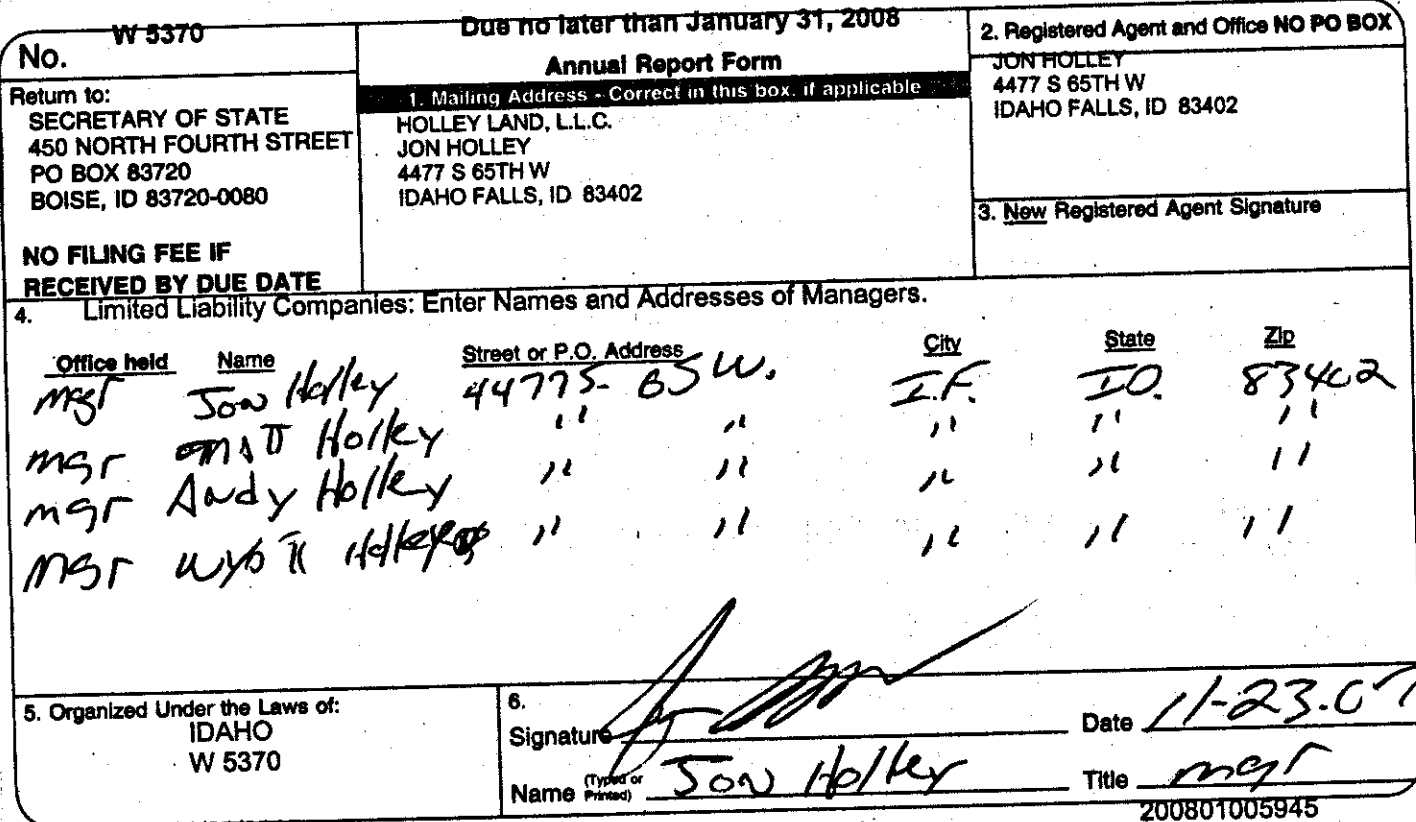 No. W 5370
Return to:
SECRETARY OF STATE
450 NORTH FOURTH STREET
PO BOX 83720
BOISE, ID 83720-0080
NO FILING FEE IF
RECEIVED BY DUE DATE
Due no later than January 31, 2008
Annual Report Form
1. Mailing Address - Correct in this box, if applicable
HOLLEY LAND, L.L.C.
JON HOLLEY
4477 S 65TH W
IDAHO FALLS, ID 83402
2. Registered Agent and Office NO PO BOX
JON HOLLEY
4477 S 65TH W
IDAHO FALLS, ID 83402
3. New Registered Agent Signature
4. Limited Liability Companies: Enter Names and Addresses of Managers.
Office held Name Street or P.O. Address City State Zip
mgr Jon Holley 4477 S. 65 W. I.F. ID. 83402
mgr Holley " " " " "
mgr Andy Holley " " " " "
mgr Holley " " " " "
5. Organized Under the Laws of:
IDAHO
W 5370
6.
Signature Date 11-23.07
Name (Typed or Printed) Jon Holley Title mgr
200801005945